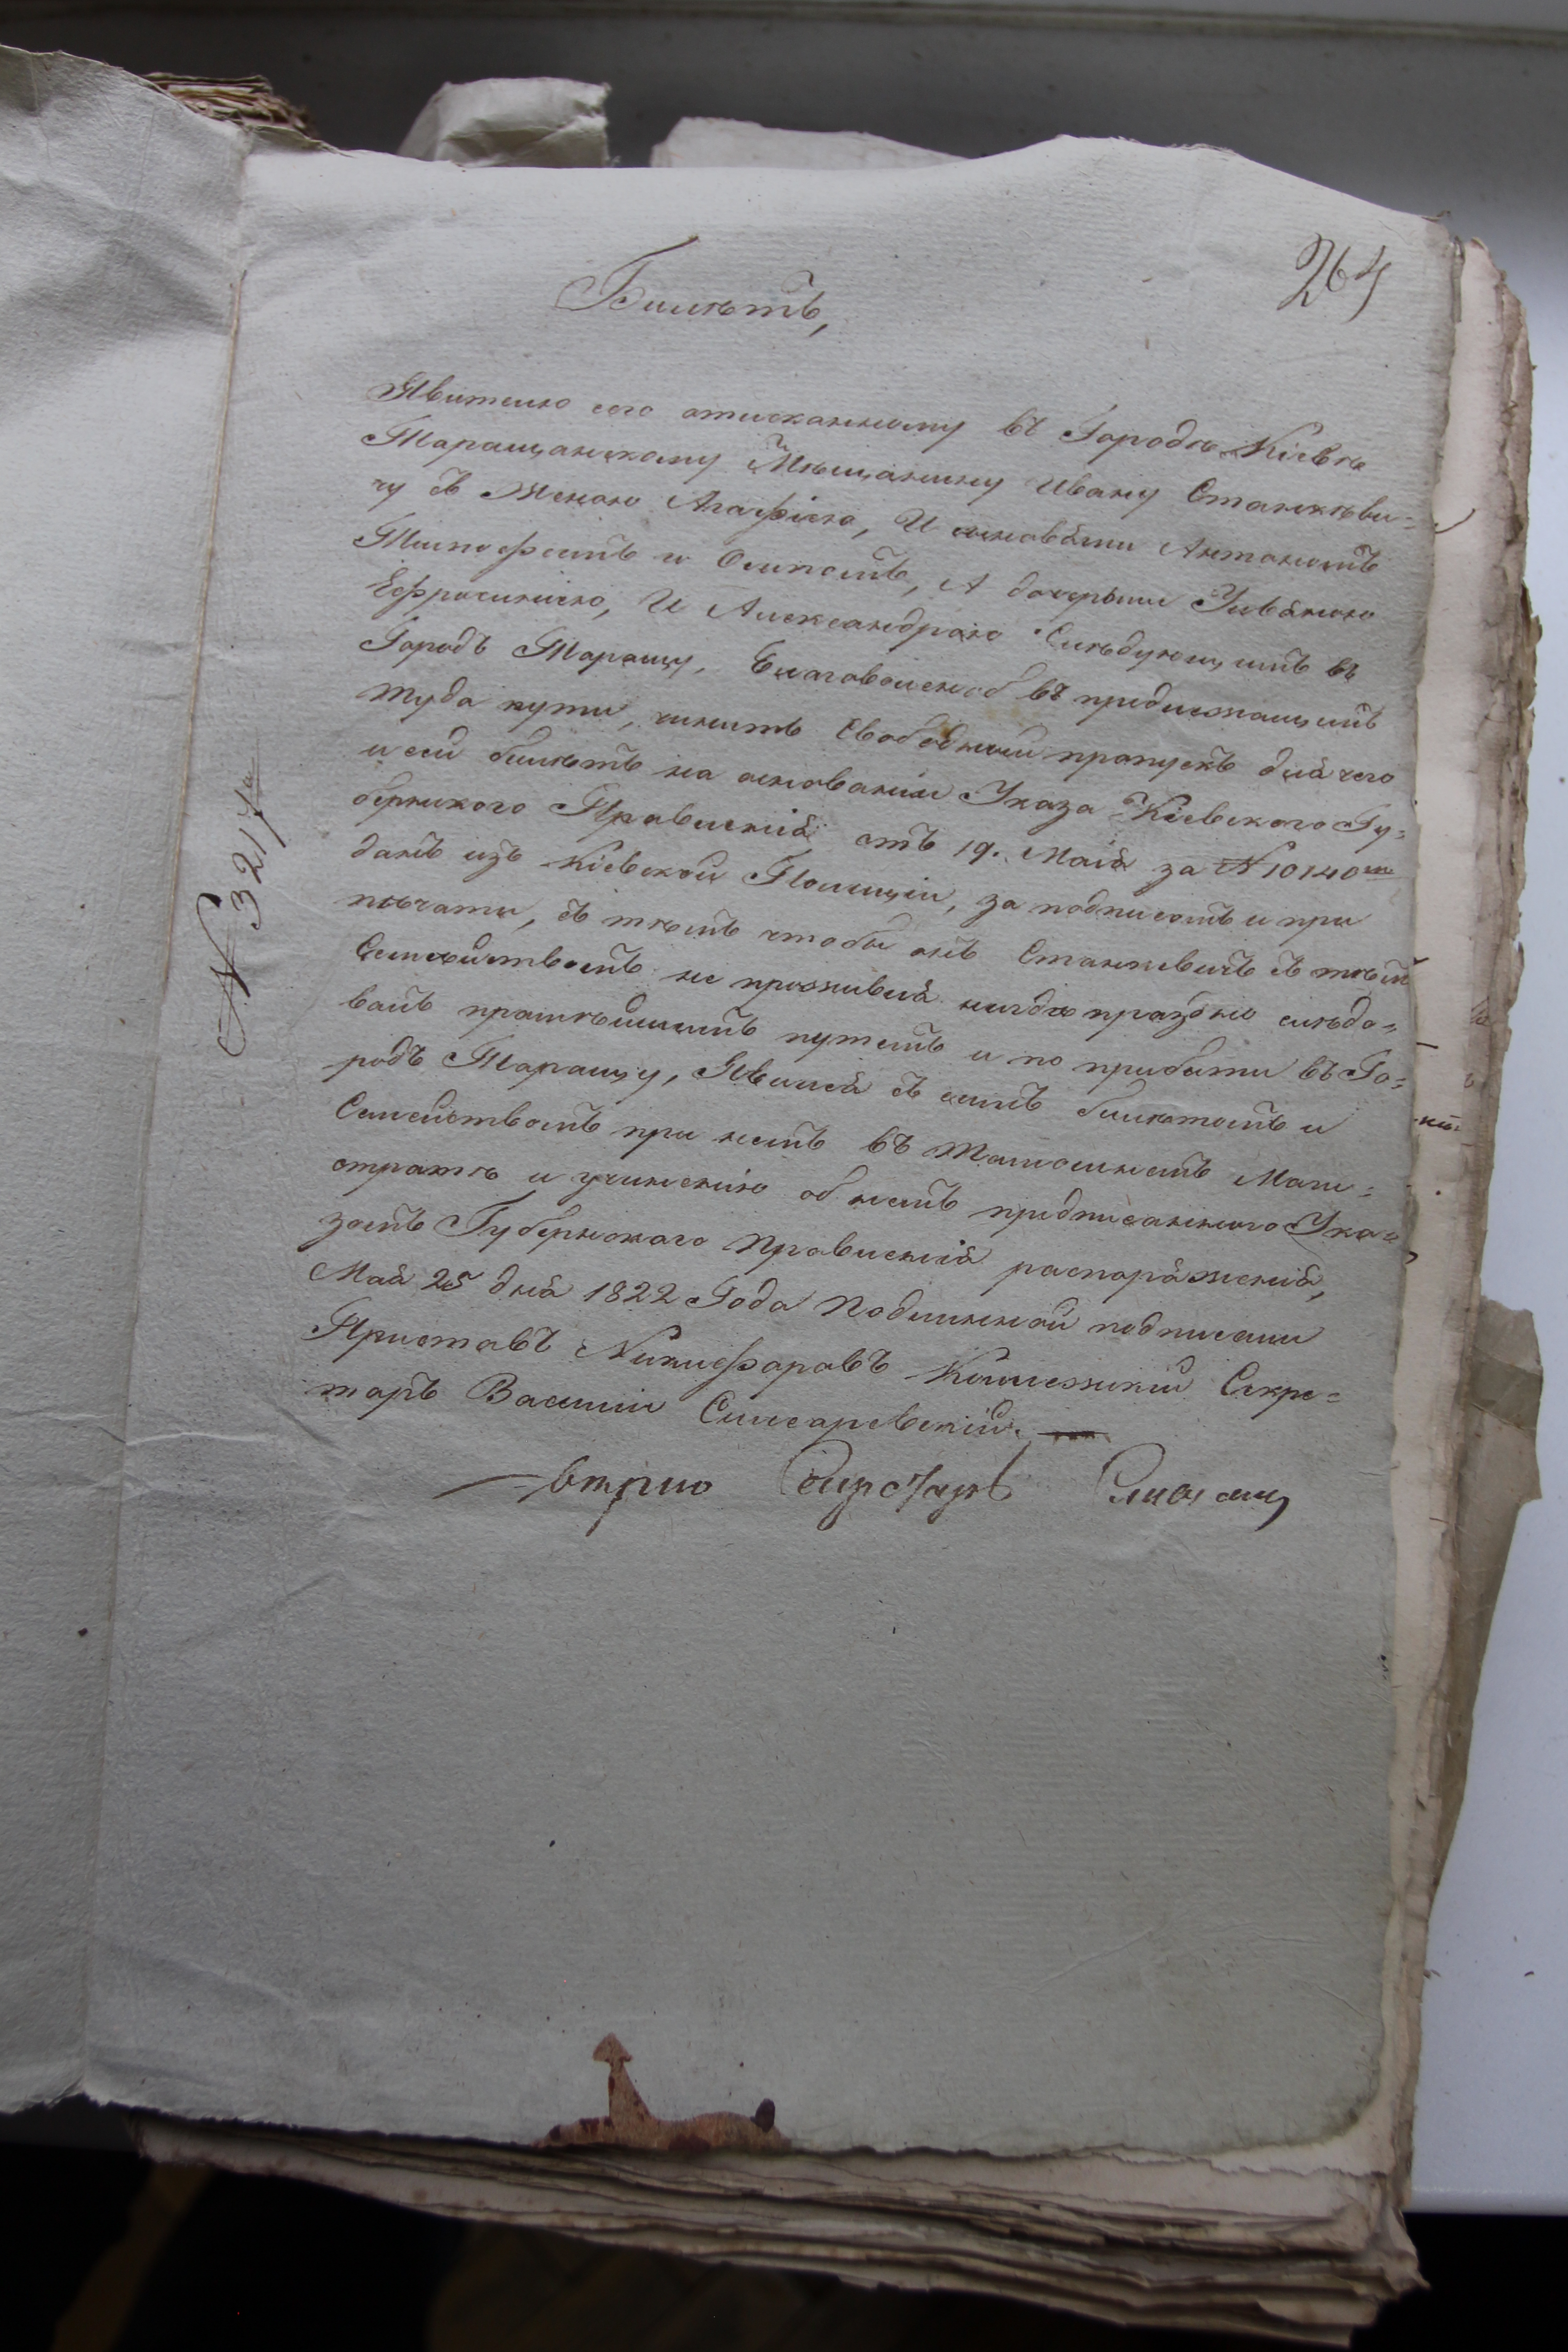 264
Билѣтъ,
Явителю сего отисканному въ Городѣ Кіевѣ
Таращанскому Мѣщанину Ивану Станкѣви=
чу съ Женою Агафіею, И сыновями Антономъ
Тимофеемъ и Осипомъ, А дочерьми Уляною
Ефросиніею, И Александрою Слѣдующимъ въ
Городъ Таращу, Благоволеноб въ предлежащимъ
туда пути, чинить Свободный пропускъ для чего
и сей билѣтъ на основаніи Указа Кіевского Гу=
бернского Правленія отъ 19. Маія за №10140мъ
данъ изъ Кіевской Полиціи, за подписомъ и при
пѣчати, съ тѣмъ чтобы онъ Станкевичъ съ тѣмъ
Семѣйствомъ не проживая нигде праздно слѣдо=
валъ прамѣйшимъ путемъ и по прибыти въ Го=
родъ Таращу, Явился съ симъ билѣтомъ и
Семейством при немъ въ Тамошнемъ Маги=
стратѣ и учиненію об немъ предписанного Ука=
зомъ Губернскаго Правленія распоряженія,
Мая 25 дня 1822 Года Подлинной подписали
Приставъ Никифоравъ Колежскій Секре=
таръ Василии Слисаревскій.
№ 3217го